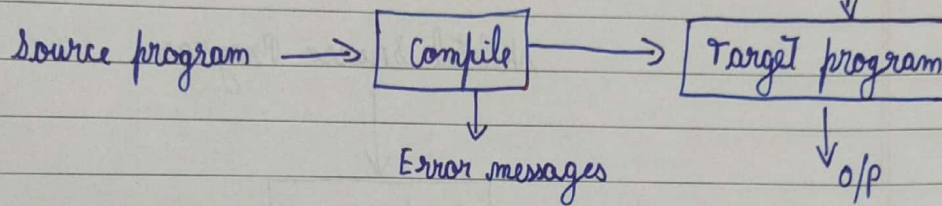 Source program Compile Target program
Error messages O/P